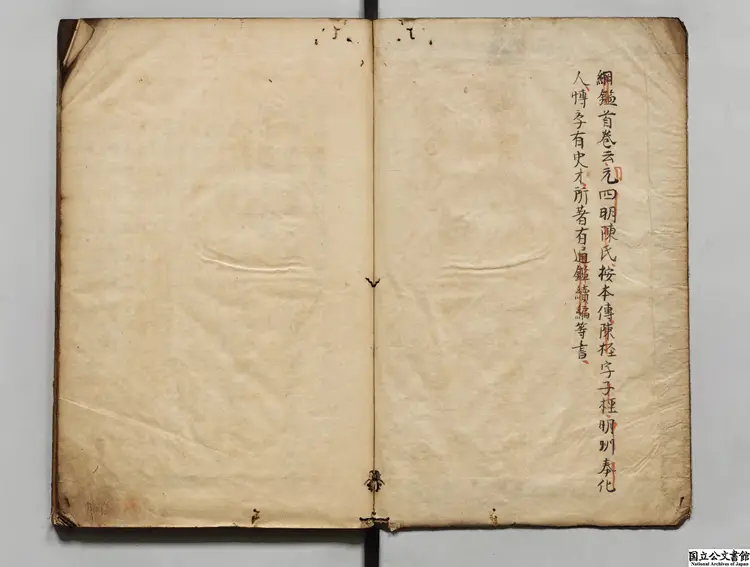 綱鑑首巻云元四明陳氏按本傳陳桱字子桱明州奉化
人博孝有史才所著有通鑑續編等書
国立公文書館
National Archives of Japan